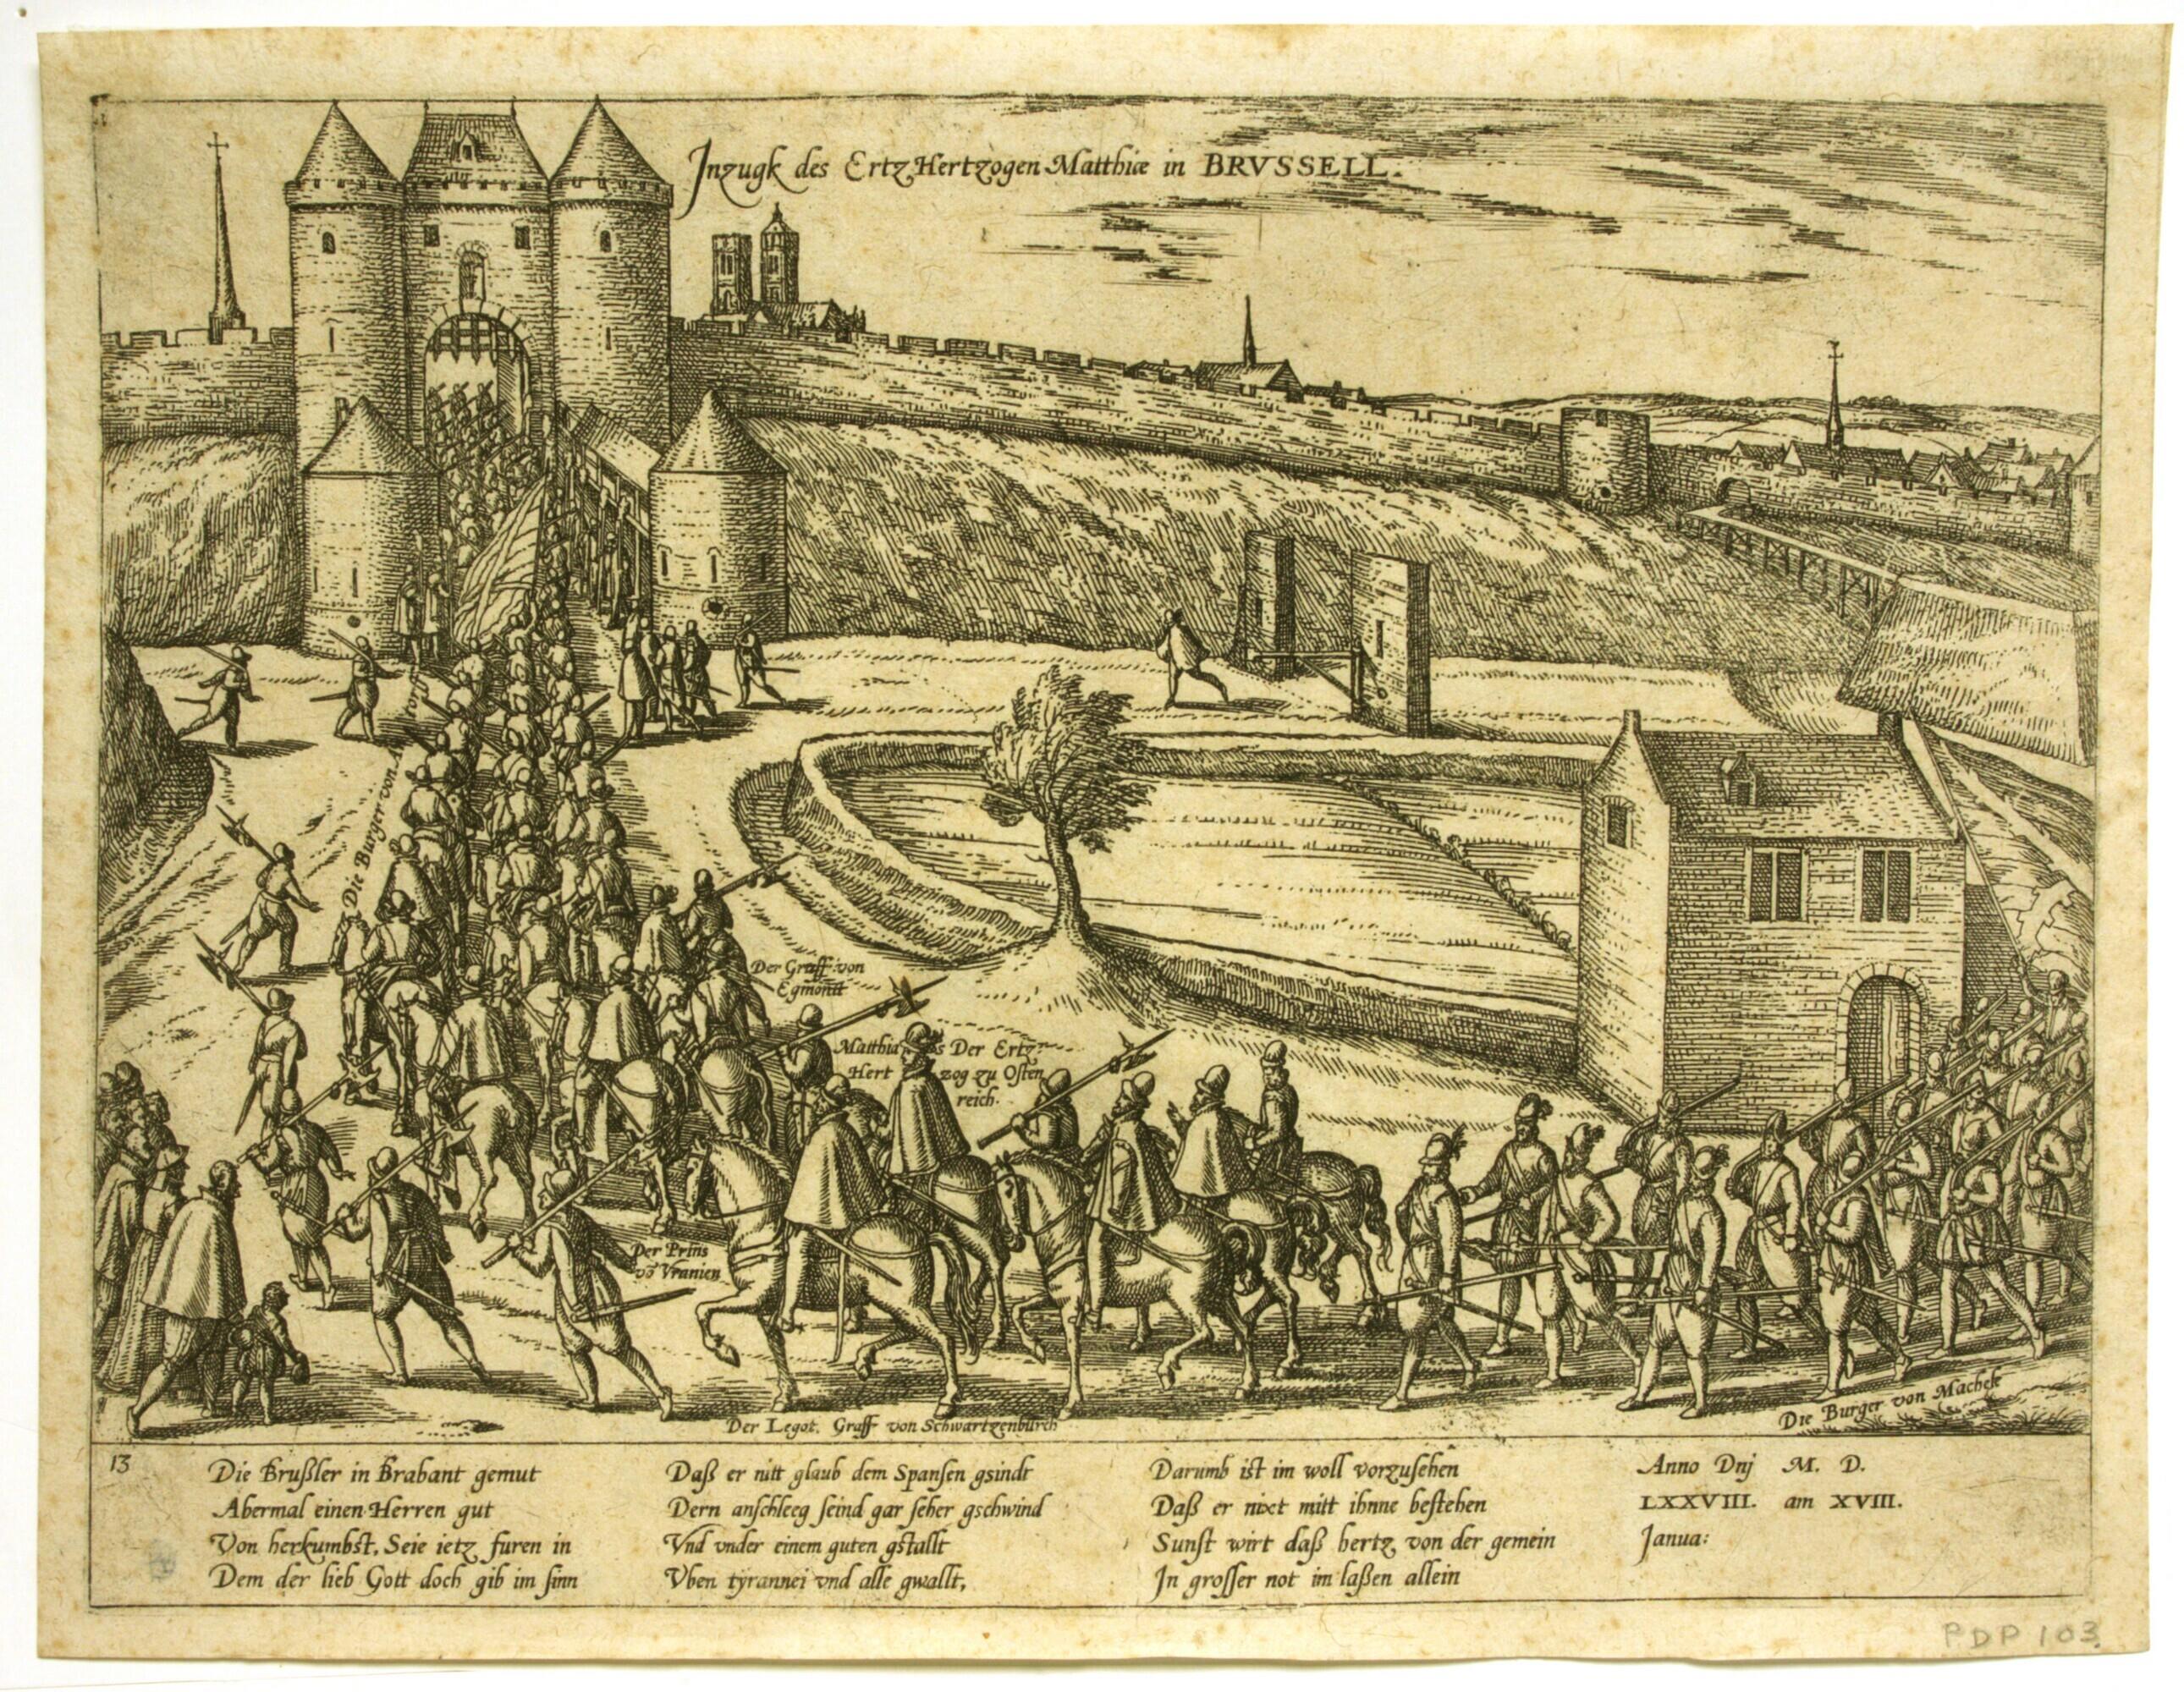 Inzugk des Ertz Hertzogen Matthiæ in BRVSSELL.
Die Burger von
Der Graff von
Egmontt
Matthias Der Ertz
Hertzog zu Osten
reich.
Der Prins
vo Vranien
Der Legot. Graff von Schwartzenburch
Die Burger von Machele
13
Die Brußler in Brabant gemut
Abermal einen Herren gut
Von herkumbst, Seie ietz furen in
Dem der lieb Gott doch gib im sinn
Daß er nitt glaub dem Spansen gsindt
Dern anschleeg seind gar seher gschwind
Vnd vnder einem guten gstallt
Vben tyrannei vnd alle gwallt,
Darumb ist im woll vorzusehen
Daß er nixt mitt ihnne bestehen
Sunst wirt daß hertz von der gemein
In grosser not im laßen allein
Anno Dnj M. D.
LXXVIII. am XVIII.
Janua:
PDP 103.